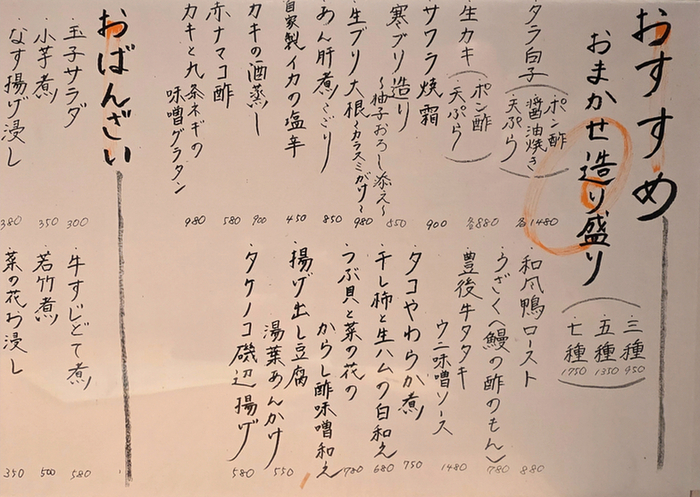 おすすめ
おまかせ造り盛り
三種 950
五種 1350
七種 1750
・タラ白子(ポン酢 醤油焼き 天ぷら) 各1480
・生カキ(ポン酢 天ぷら) 各880
・サワラ焼霜 900
・寒ブリ造り 〜柚子おろし添え〜 850
・生ブリ大根〜カラスミがけ〜 980
・あん肝煮こごり 850
自家製イカの塩辛 450
カキの酒蒸し 900
赤ナマコ酢 580
カキと九条ネギの味噌グラタン 980
・和風鴨ロースト 880
・うざく(鰻の酢のもん) 780
・豊後牛タタキ ウニ味噌ソース 1480
・タコやわらか煮 750
・干し柿と生ハムの白和え 680
・つぶ貝と菜の花のからし酢味噌和え 780
・揚げ出し豆腐 湯葉あんかけ 550
・タケノコ磯辺揚げ 580
おばんざい
・玉子サラダ 300
・小芋煮 350
・なす揚げ浸し 380
・牛すじどて煮 580
・若竹煮 500
・菜の花お浸し 350